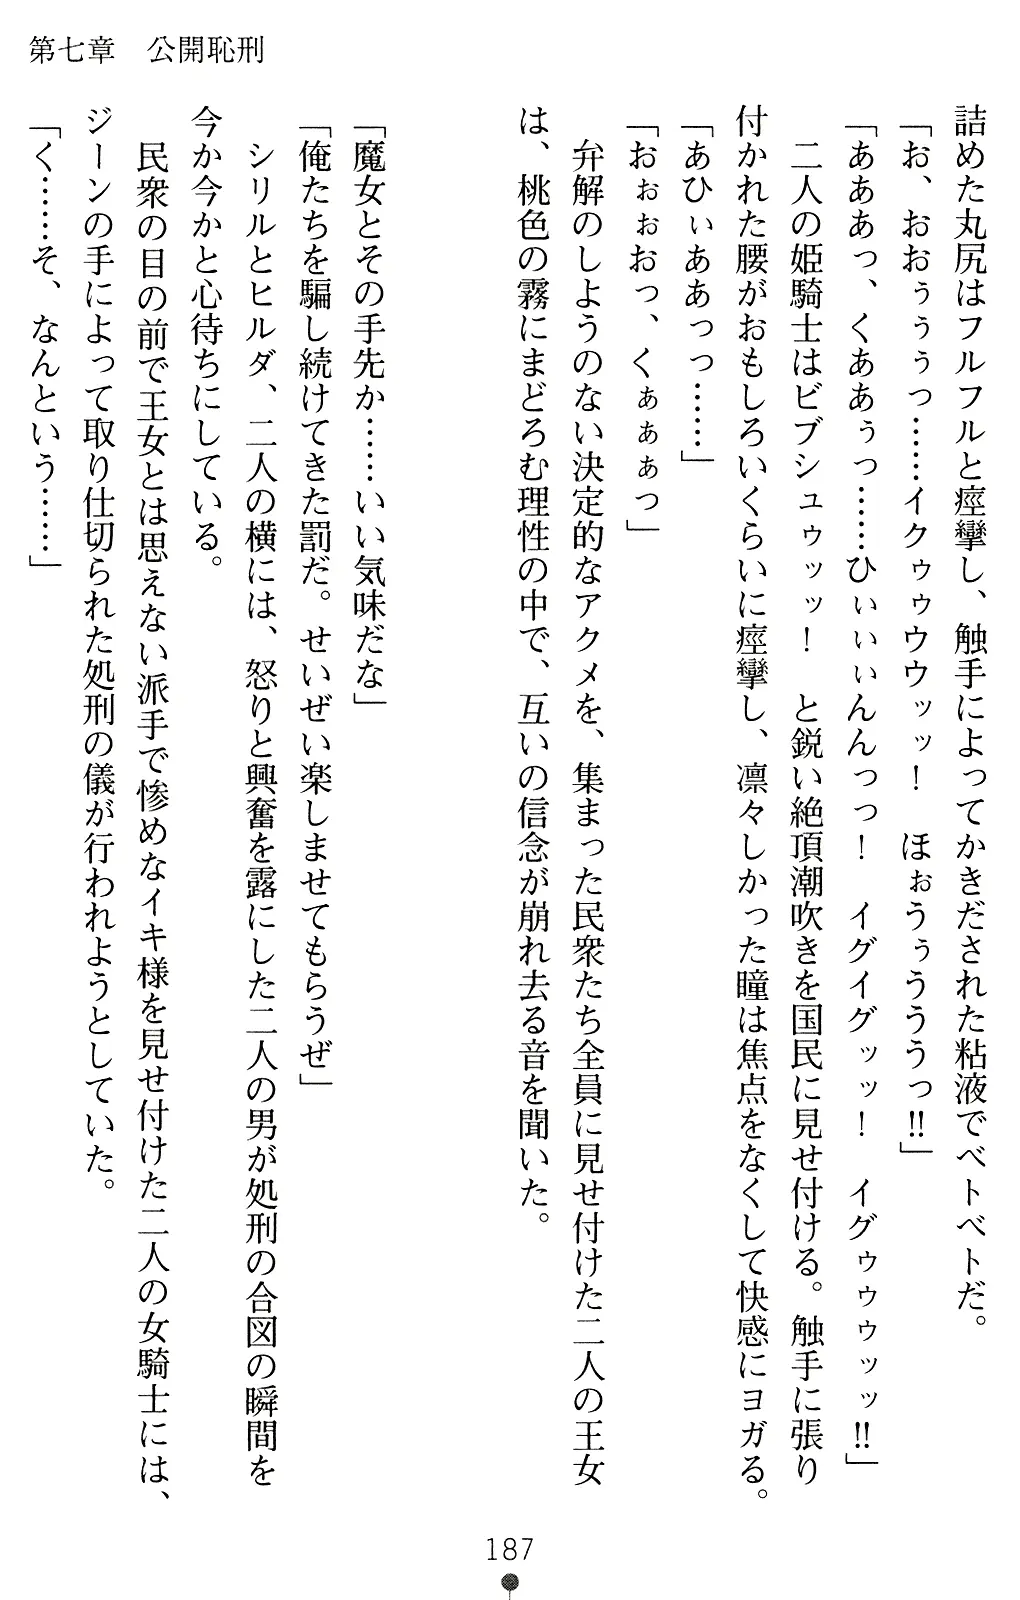 第七章　公開恥刑
詰めた丸尻はフルフルと痙攣し、触手によってかきだされた粘液でベトベトだ。
「お、おおぅぅぅっ……イクゥゥウウッッ！　ほぉうぅぅううっ!!」
「あああっ、くああぅっ……ひぃぃぃんんっっ！　イグイグッッ！　イグゥゥゥッッ!!」
　二人の姫騎士はビブシュゥッッ！　と鋭い絶頂潮吹きを国民に見せ付ける。触手に張り
付かれた腰がおもしろいくらいに痙攣し、凛々しかった瞳は焦点をなくして快感にヨガる。
「あひぃああっっ……」
「おぉぉおっ、くぁぁぁっ」
　弁解のしようのない決定的なアクメを、集まった民衆たち全員に見せ付けた二人の王女
は、桃色の霧にまどろむ理性の中で、互いの信念が崩れ去る音を聞いた。
「魔女とその手先か……いい気味だな」
「俺たちを騙し続けてきた罰だ。せいぜい楽しませてもらうぜ」
　シリルとヒルダ、二人の横には、怒りと興奮を露にした二人の男が処刑の合図の瞬間を
今か今かと心待ちにしている。
　民衆の目の前で王女とは思えない派手で惨めなイキ様を見せ付けた二人の女騎士には、
ジーンの手によって取り仕切られた処刑の儀が行われようとしていた。
「く……そ、なんという……」
187